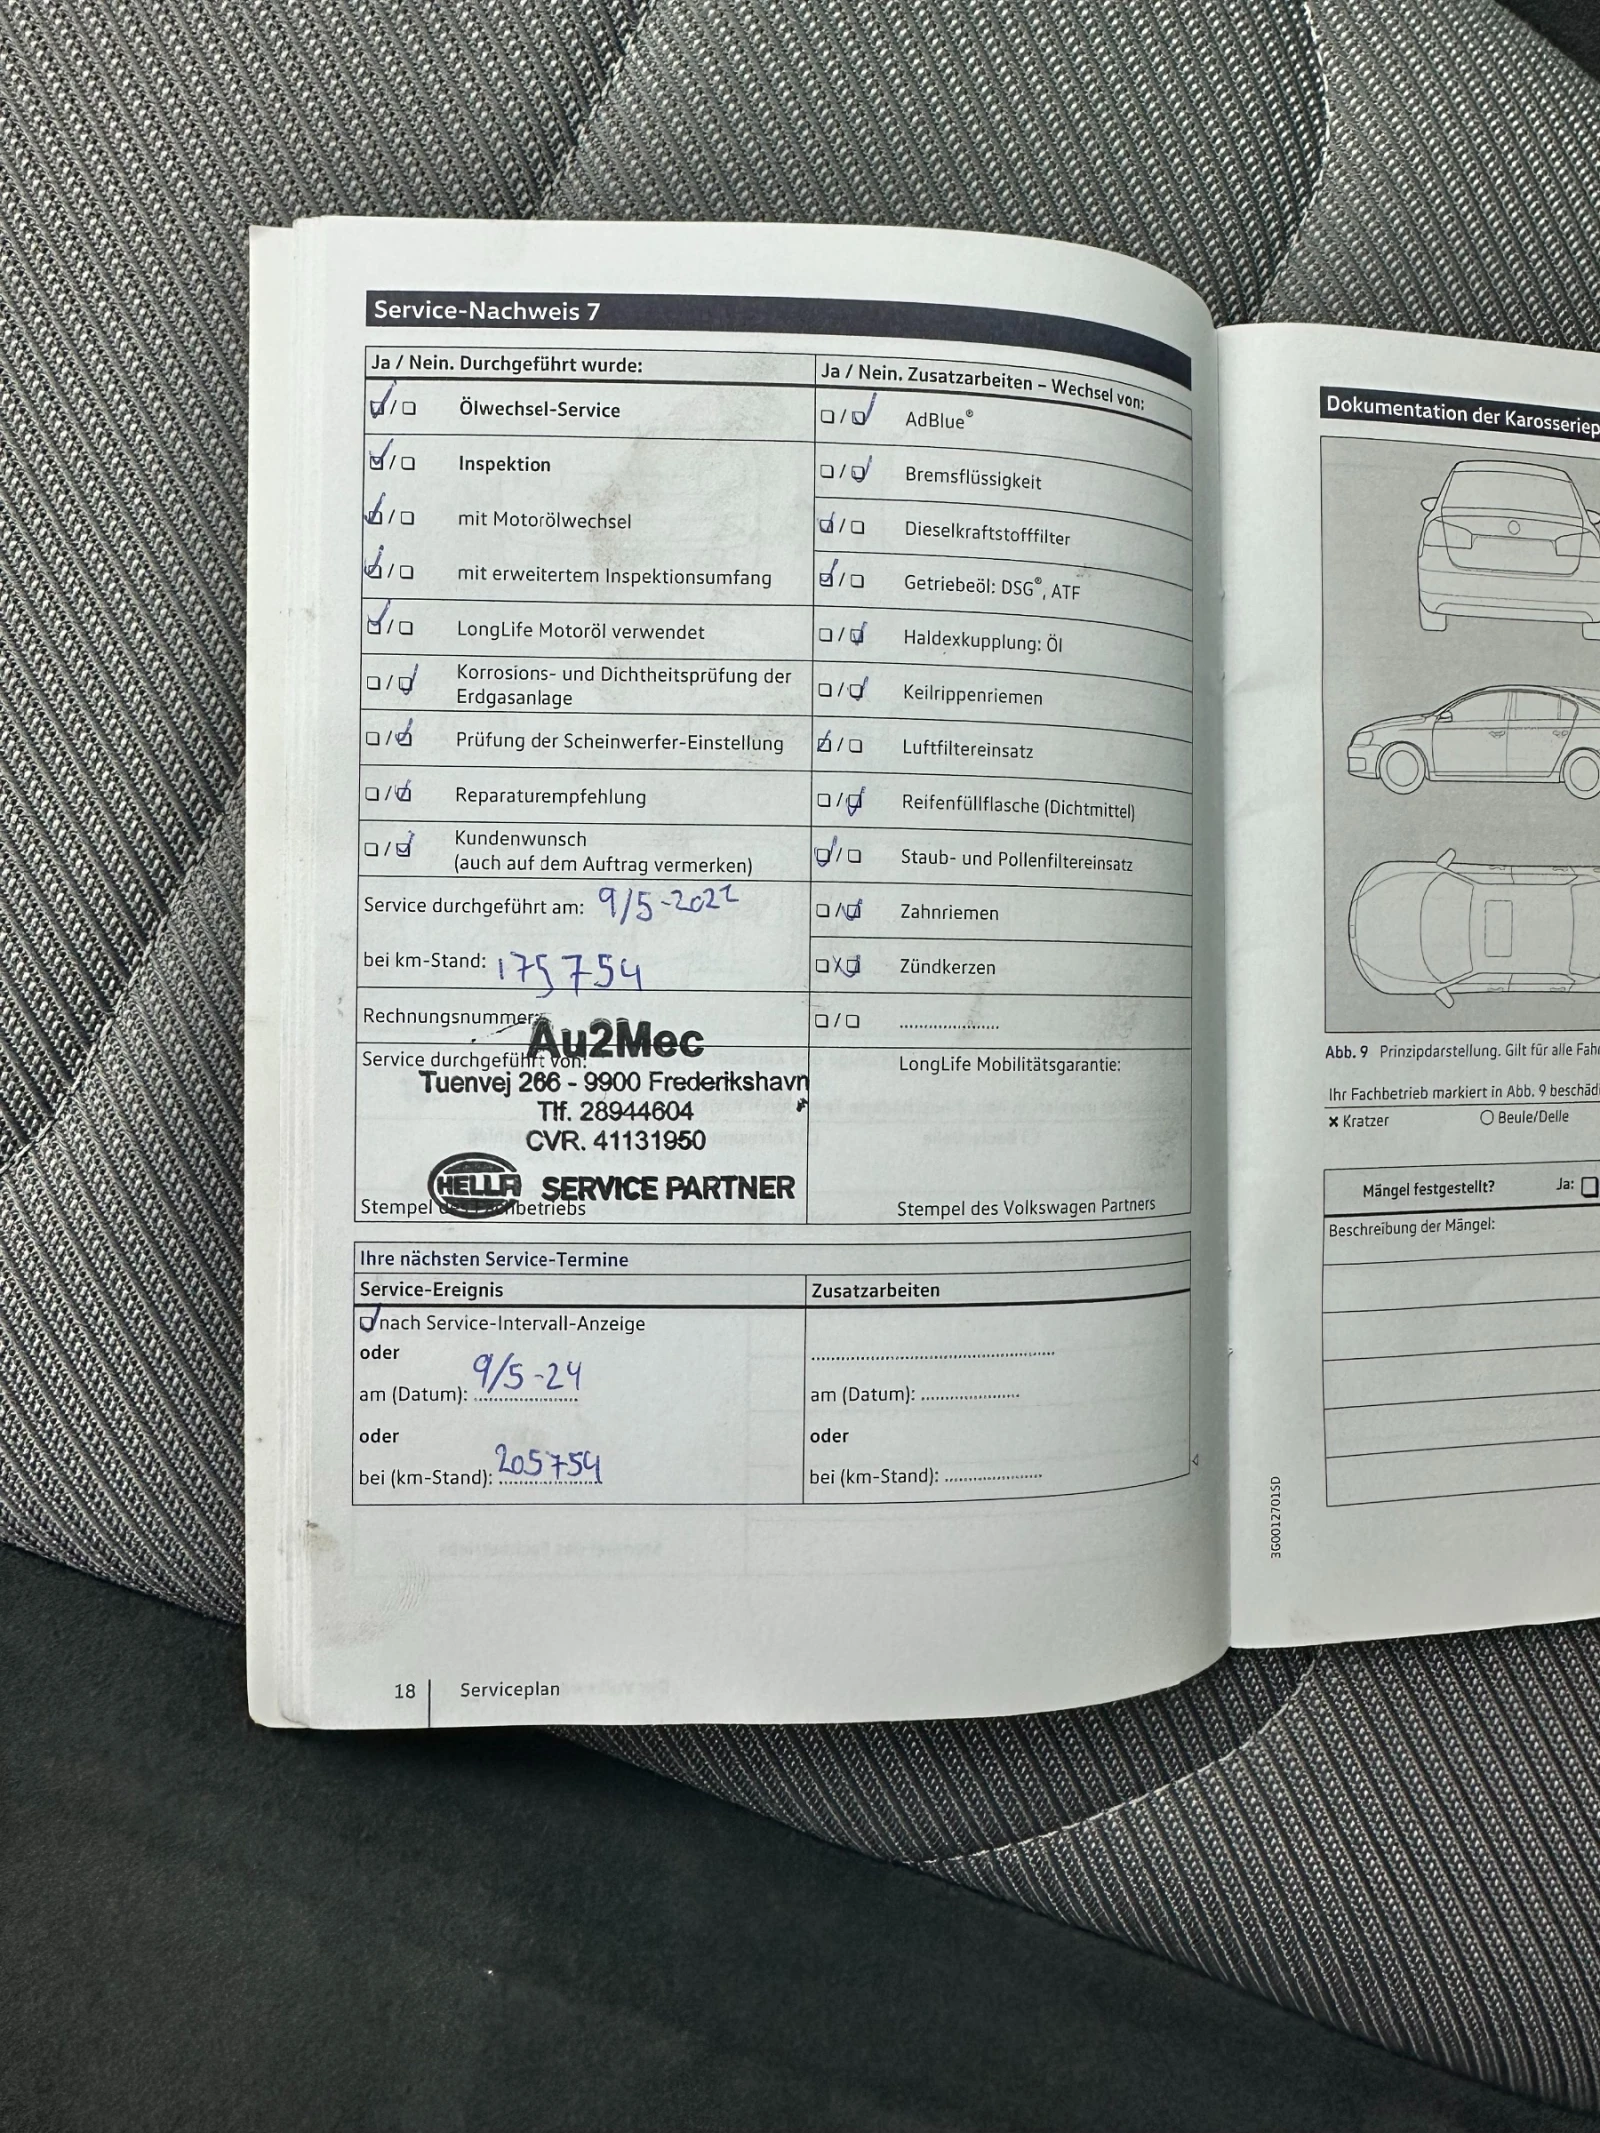 Service-Nachweis 7
Ja / Nein. Durchgeführt wurde:
Ölwechsel-Service
Inspektion
mit Motorölwechsel
mit erweitertem Inspektionsumfang
LongLife Motoröl verwendet
Korrosions- und Dichtheitsprüfung der
Erdgasanlage
Prüfung der Scheinwerfer-Einstellung
Reparaturempfehlung
Kundenwunsch
(auch auf dem Auftrag vermerken)
Service durchgeführt am: 9/5-2022
bei km-Stand: 175754
Rechnungsnummer:
Au2Mec
Service durchgeführt von:
Tuenvej 266 - 9900 Frederikshavn
Tlf. 28944604
CVR. 41131950
HELLA SERVICE PARTNER
Stempel des Fachbetriebs
Ja / Nein. Zusatzarbeiten – Wechsel von:
AdBlue®
Bremsflüssigkeit
Dieselkraftstofffilter
Getriebeöl: DSG®, ATF
Haldexkupplung: Öl
Keilrippenriemen
Luftfiltereinsatz
Reifenfüllflasche (Dichtmittel)
Staub- und Pollenfiltereinsatz
Zahnriemen
Zündkerzen
LongLife Mobilitätsgarantie:
Stempel des Volkswagen Partners
Ihre nächsten Service-Termine
Service-Ereignis
nach Service-Intervall-Anzeige
oder
am (Datum): 9/5-24
oder
bei (km-Stand): 205754
Zusatzarbeiten
am (Datum):
oder
bei (km-Stand):
18 Serviceplan
Dokumentation der
Abb. 9 Prinzipdarstellung. Gilt für alle
Ihr Fachbetrieb markiert in Abb. 9
× Kratzer
Beule/Delle
Mängel festgestellt? Ja:
Beschreibung der Mängel:
3G0012701SD